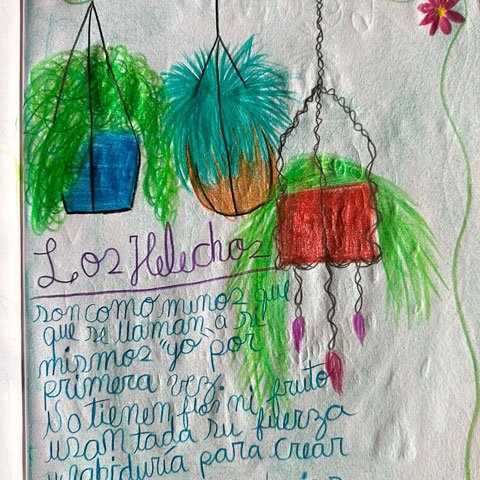 Los Helechos
son como minos que
que se llaman a si
mismos "yo por
primera vez.
No tienen flor ni fruto
usan tada su fuerza
y sabiduría para crear